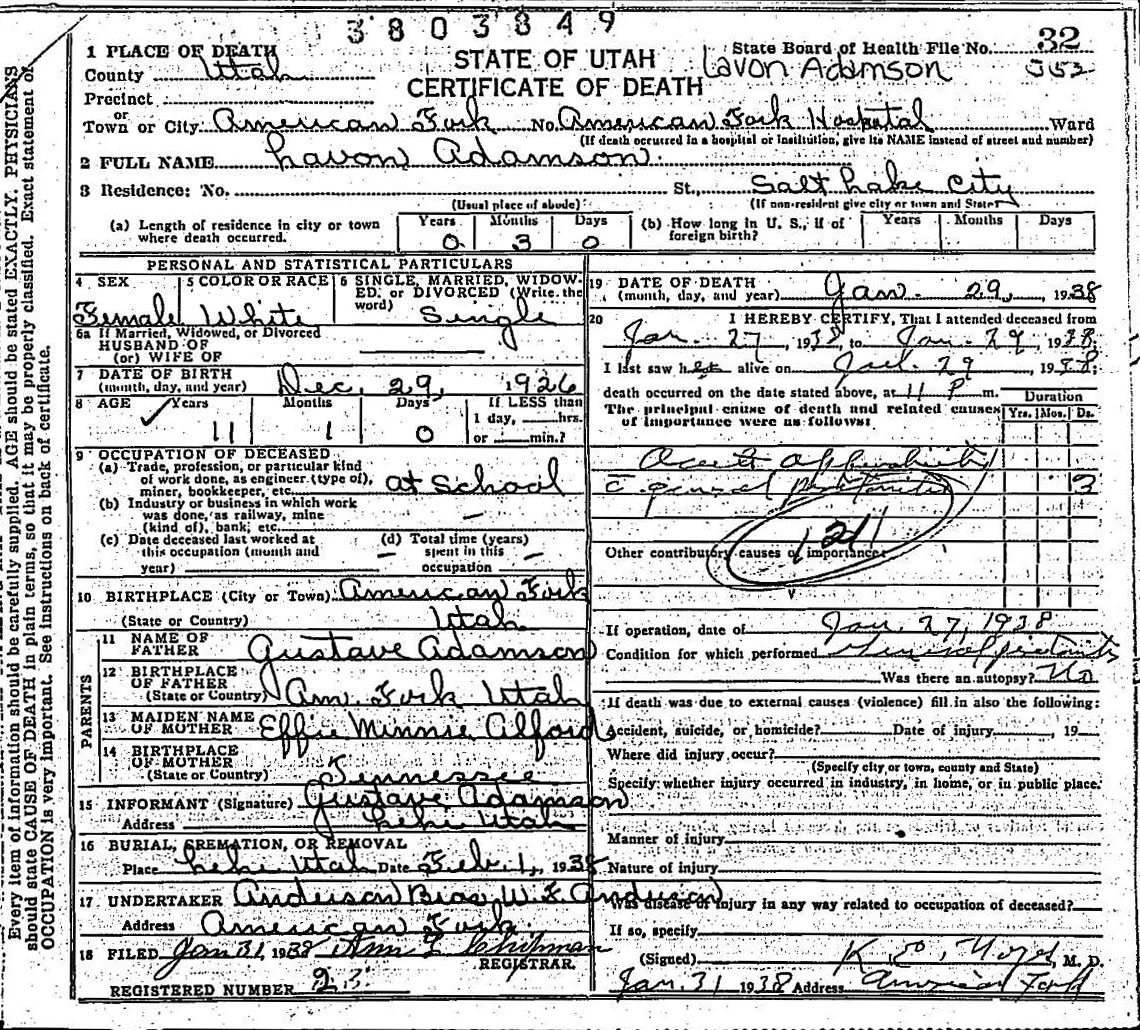 3803849
1 PLACE OF DEATH
County Utah
Precinct
or
Town or City American Fork No. American Fork Hospital Ward
(If death occurred in a hospital or institution, give its NAME instead of street and number)
STATE OF UTAH
CERTIFICATE OF DEATH
State Board of Health File No. 32
Lavon Adamson
2 FULL NAME Lavon Adamson
3 Residence: No. St., Salt Lake City
(Usual place of abode) (If non-resident give city or town and State)
(a) Length of residence in city or town where death occurred. Years 0 Months 3 Days 0
(b) How long in U. S., if of foreign birth? Years Months Days
PERSONAL AND STATISTICAL PARTICULARS
4 SEX Female
5 COLOR OR RACE White
6 SINGLE, MARRIED, WIDOWED, or DIVORCED (Write the word) Single
6a If Married, Widowed, or Divorced
HUSBAND OF
(or) WIFE OF
7 DATE OF BIRTH
(month, day, and year) Dec. 29, 1926
8 AGE Years 11 Months 1 Days 0 If LESS than 1 day, hrs. or min.?
9 OCCUPATION OF DECEASED
(a) Trade, profession, or particular kind of work done, as engineer (type of), miner, bookkeeper, etc. at School
(b) Industry or business in which work was done, as railway, mine (kind of), bank, etc. —
(c) Date deceased last worked at this occupation (month and year) —
(d) Total time (years) spent in this occupation —
10 BIRTHPLACE (City or Town) American Fork
(State or Country) Utah
PARENTS
11 NAME OF FATHER Gustave Adamson
12 BIRTHPLACE OF FATHER
(State or Country) Am. Fork Utah
13 MAIDEN NAME OF MOTHER Effie Minnie Alford
14 BIRTHPLACE OF MOTHER
(State or Country) Tennessee
15 INFORMANT (Signature) Gustave Adamson
Address Lehi Utah
16 BURIAL, CREMATION, OR REMOVAL
Place Lehi Utah Date Feb. 1, 1938
17 UNDERTAKER Anderson Bros. W. E. Anderson
Address American Fork.
18 FILED Jan 31, 1938
REGISTRAR.
REGISTERED NUMBER 23
19 DATE OF DEATH
(month, day, and year) Jan. 29, 1938
20 I HEREBY CERTIFY, That I attended deceased from
Jan. 27, 1938, to Jan. 29, 1938;
I last saw her alive on Jan. 29, 1938;
death occurred on the date stated above, at 11 P m.
The principal cause of death and related causes of importance were as follows:
Duration
Yrs. Mos. Ds.
Acute appendicitis
c̄ general peritonitis 3
121
Other contributory causes of importance:
If operation, date of Jan. 27, 1938
Condition for which performed General peritonitis
Was there an autopsy? No
If death was due to external causes (violence) fill in also the following:
Accident, suicide, or homicide? Date of injury , 19
Where did injury occur?
(Specify city or town, county and State)
Specify whether injury occurred in industry, in home, or in public place.
Manner of injury
Nature of injury
Was disease or injury in any way related to occupation of deceased?
If so, specify
(Signed) M. D.
Jan. 31 1938 Address American Fork
Every item of information should be carefully supplied. AGE should be stated EXACTLY. PHYSICIANS
should state CAUSE OF DEATH in plain terms, so that it may be properly classified. Exact statement of
OCCUPATION is very important. See instructions on back of certificate.